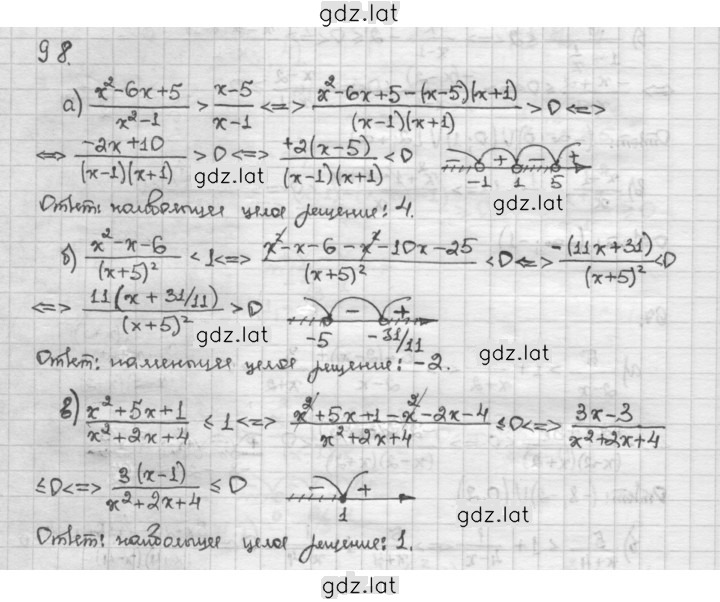 gdz.lat
98.
а) (x²-6x+5)/(x²-1) > (x-5)/(x-1) <=> (x²-6x+5-(x-5)(x+1))/((x-1)(x+1)) > 0 <=>
<=> (-2x+10)/((x-1)(x+1)) > 0 <=> (+2(x-5))/((x-1)(x+1)) < 0 - + - + -1 1 5
gdz.lat gdz.lat
Ответ: наибольшее целое решение: 4.
б) (x²-x-6)/(x+5)² < 1 <=> (x²-x-6-x²-10x-25)/(x+5)² < 0 <=> (-(11x+31))/(x+5)² < 0
<=> (11(x+31/11))/(x+5)² > 0 - + -5 -31/11
gdz.lat gdz.lat
Ответ: наименьшее целое решение: -2.
в) (x²+5x+1)/(x²+2x+4) ≤ 1 <=> (x²+5x+1-x²-2x-4)/(x²+2x+4) ≤ 0 <=> (3x-3)/(x²+2x+4)
≤ 0 <=> (3(x-1))/(x²+2x+4) ≤ 0 - + 1
gdz.lat
Ответ: наибольшее целое решение: 1.
gdz.lat